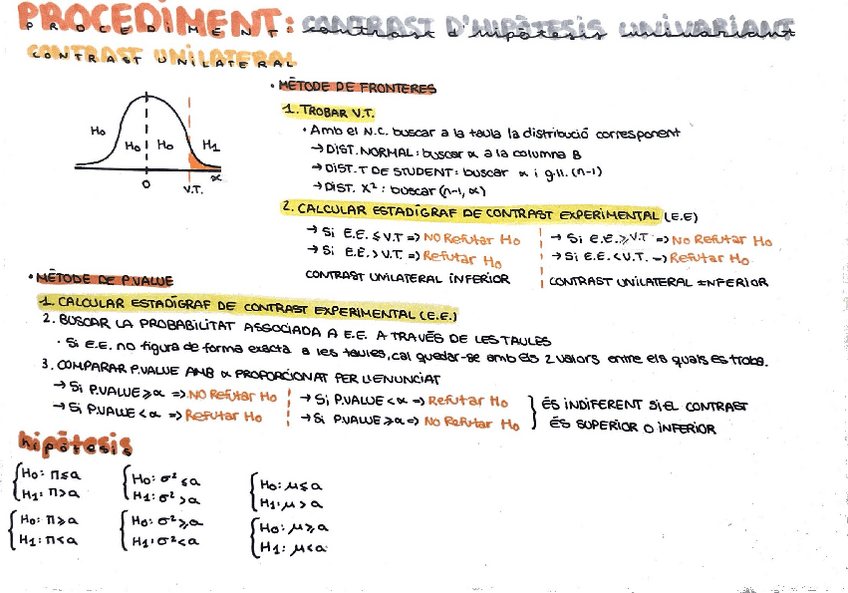 PROCEDIMENT: CONTRAST D'HIPÒTESIS UNIVARIANT
CONTRAST UNILATERAL
· MÈTODE DE FRONTERES
1. TROBAR V.T.
· Amb el N.C. buscar a la taula la distribució corresponent
→ DIST. NORMAL: buscar α a la columna B
→ DIST. T DE STUDENT: buscar α i g.ll. (n-1)
→ DIST. X²: buscar (n-1, α)
H₀
H₀ H₀ H₁
0 V.T. α
2. CALCULAR ESTADÍGRAF DE CONTRAST EXPERIMENTAL (E.E)
→ Si E.E. ≤ V.T => NO Refutar H₀
→ Si E.E. > V.T. => Refutar H₀
CONTRAST UNILATERAL INFERIOR
→ Si E.E. ≥ V.T => No Refutar H₀
→ Si E.E. < V.T. => Refutar H₀.
CONTRAST UNILATERAL INFERIOR
· MÈTODE DE P.VALUE
1. CALCULAR ESTADÍGRAF DE CONTRAST EXPERIMENTAL (E.E.)
2. BUSCAR LA PROBABILITAT ASSOCIADA A E.E. A TRAVÉS DE LES TAULES
· Si E.E. no figura de forma exacta a les taules, cal quedar-se amb els 2 valors entre els quals es troba.
3. COMPARAR P.VALUE AMB α PROPORCIONAT PER L'ENUNCIAT
→ Si P.VALUE ≥ α => NO Refutar H₀
→ Si P.VALUE < α => Refutar H₀
→ Si P.VALUE < α => Refutar H₀
→ Si P.VALUE ≥ α => No Refutar H₀
ÉS INDIFERENT SI EL CONTRAST
ÉS SUPERIOR O INFERIOR
hipòtesis
H₀: π ≤ a
H₁: π > a
H₀: σ² ≤ a
H₁: σ² > a
H₀: μ ≤ a
H₁: μ > a
H₀: π ≥ a
H₁: π < a
H₀: σ² ≥ a
H₁: σ² < a
H₀: μ ≥ a
H₁: μ < a